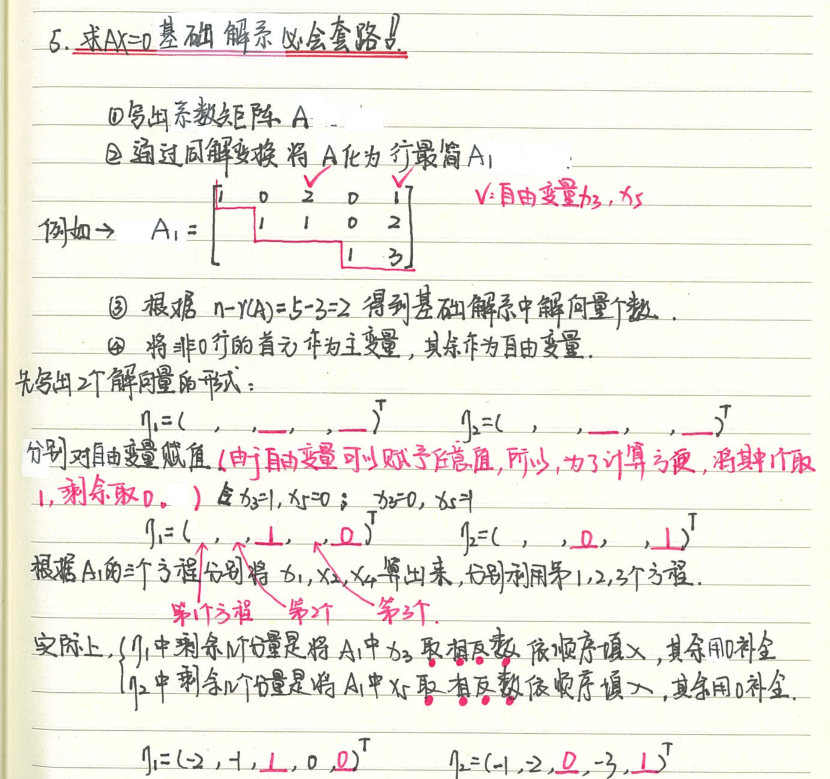 5. 求AX=0基础解系必会套路!!
①写出系数矩阵 A
②通过同解变换将 A化为行最简A₁
√:自由变量x₃, x₅
例如→ A₁ = [1 0 2 0 1
1 1 0 2
1 3]
③ 根据 n-r(A)=5-3=2 得到基础解系中解向量个数.
④ 将非0行的首元作为主变量,其余作为自由变量.
先写出2个解向量的形式:
η₁=( , , __ , , __ )ᵀ η₂=( , , __ , , __ )ᵀ
分别对自由变量赋值(由于自由变量可以赋予任意值,所以,为了计算方便,将其中1个取
1,剩余取0。) 令 x₃=1, x₅=0; x₃=0, x₅=1
η₁=( , , 1 , , 0 )ᵀ η₂=( , , 0 , , 1 )ᵀ
根据A₁的三个方程分别将 x₁, x₂, x₄ 算出来,分别利用第1,2,3个方程.
第1个方程 第2个 第3个.
实际上, {η₁中剩余几个分量是将A₁中x₃取相反数依顺序填入,其余用0补全
η₂中剩余几个分量是将A₁中x₅取相反数依顺序填入,其余用0补全.
η₁=(-2, -1, 1, 0, 0)ᵀ η₂=(-1, -2, 0, -3, 1)ᵀ